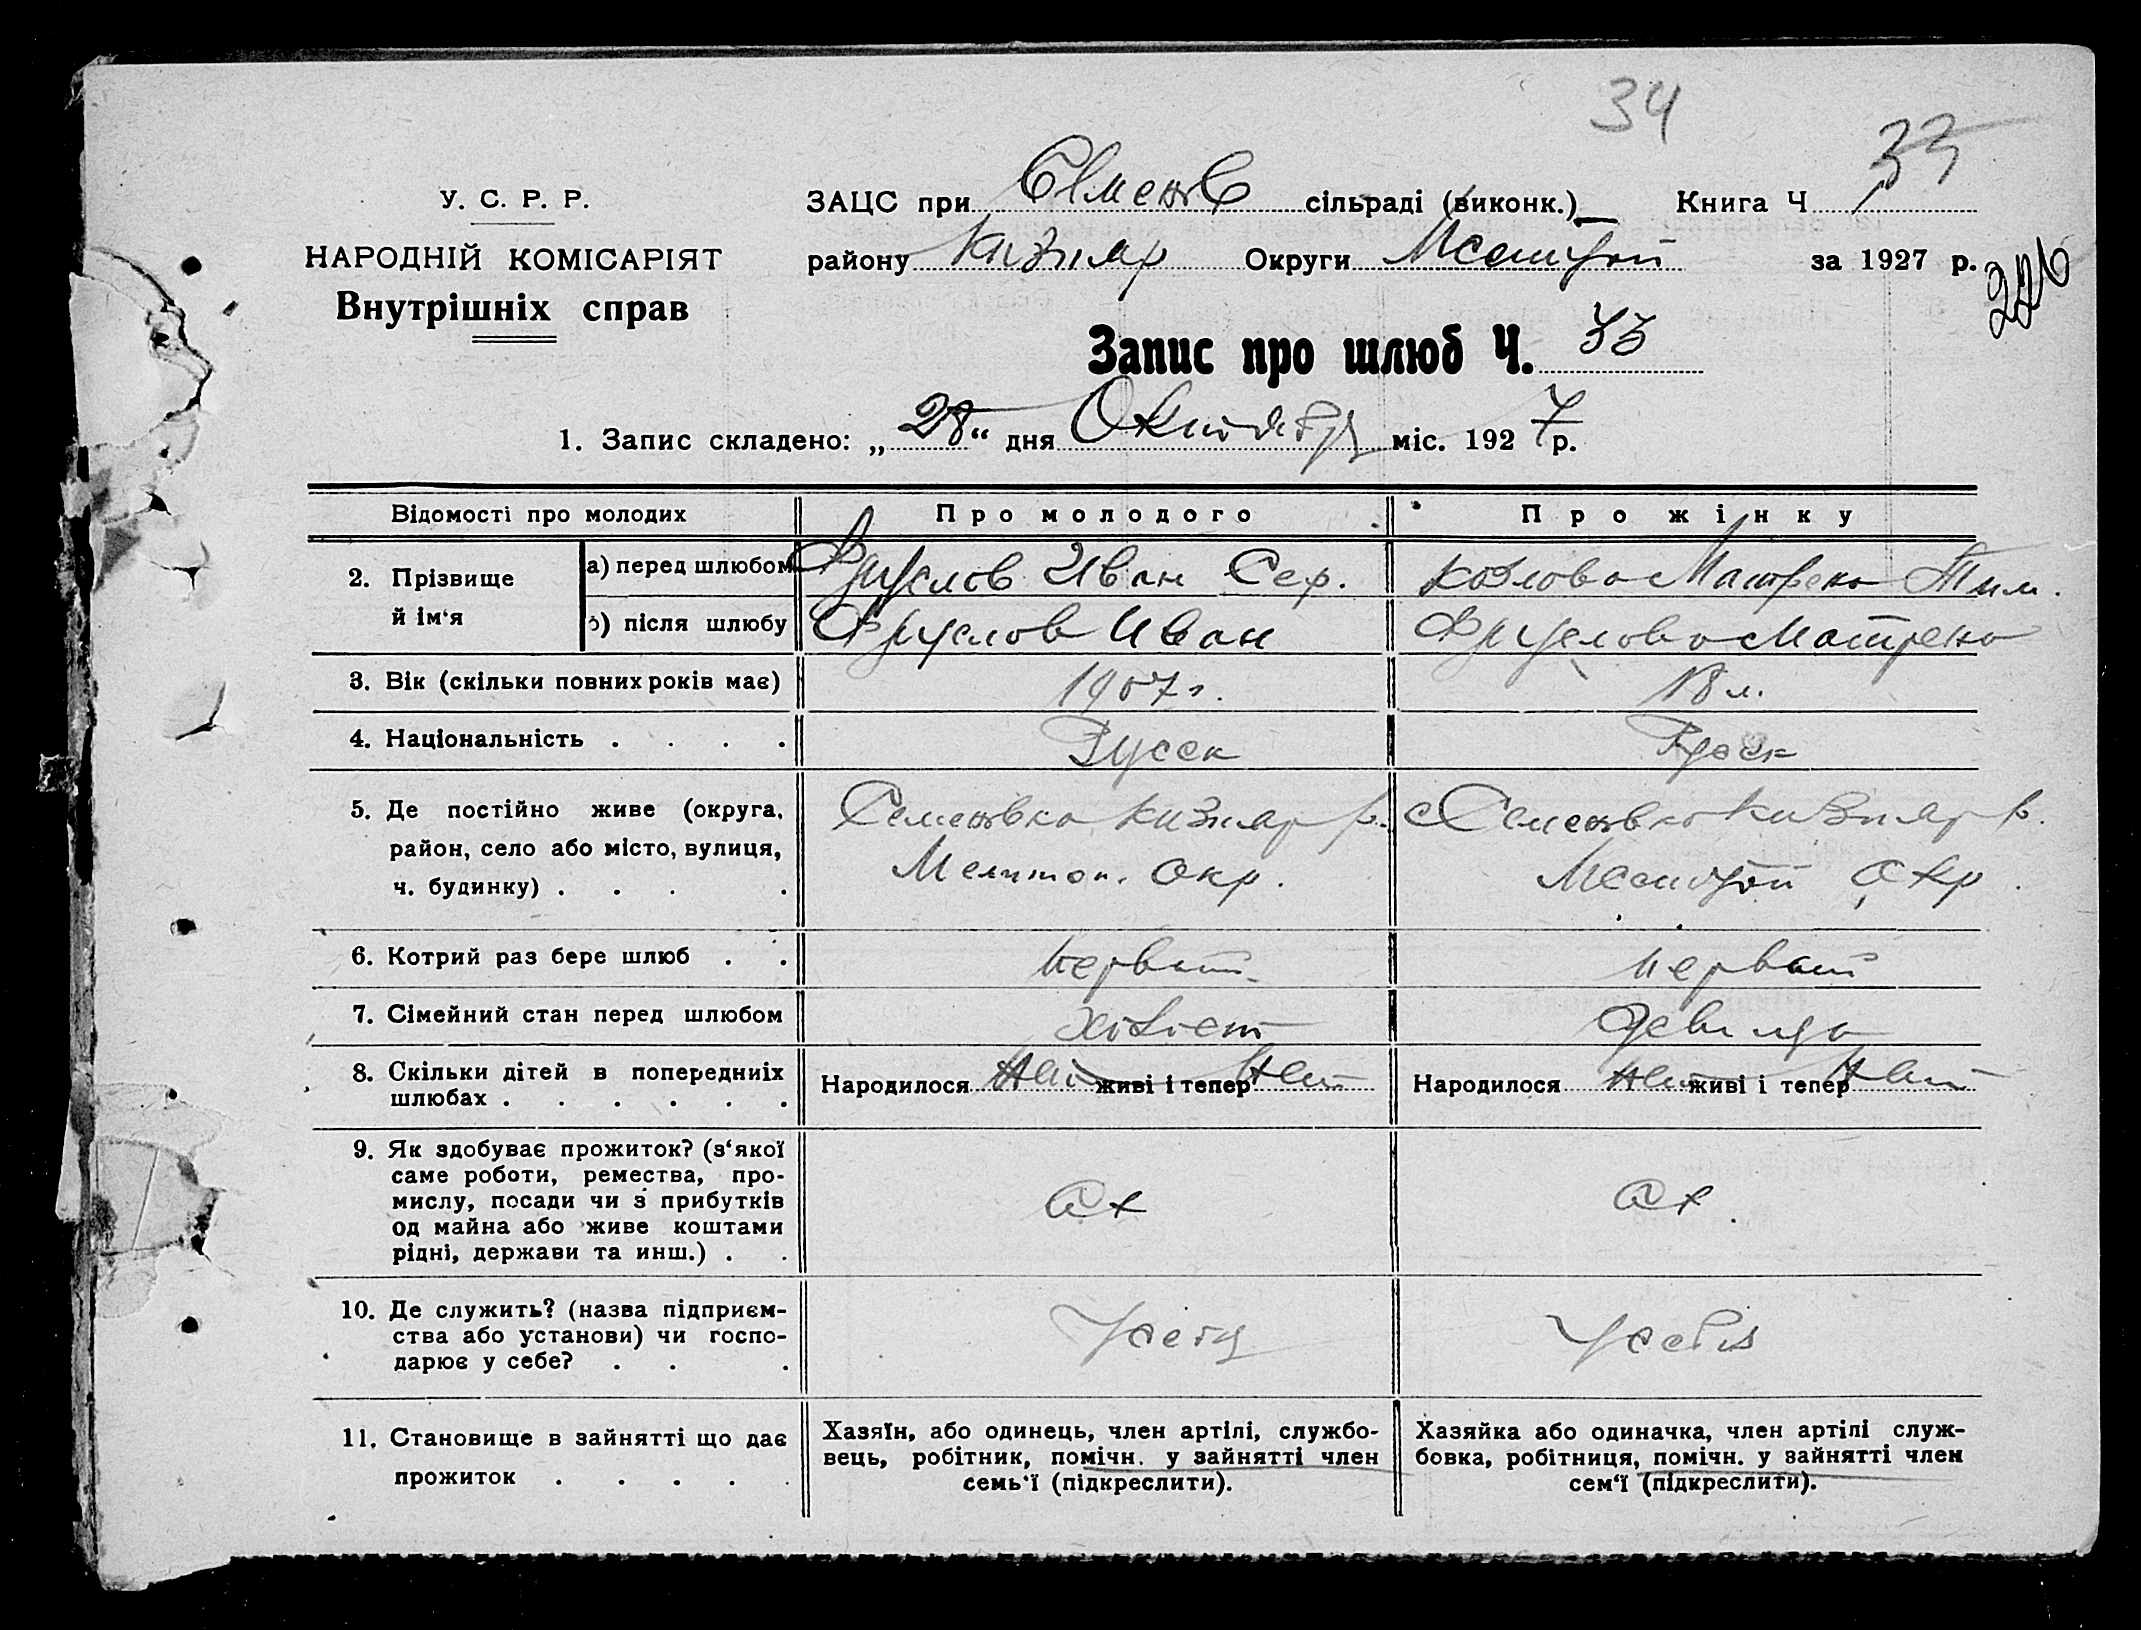 34
У. С. Р. Р.
НАРОДНІЙ КОМІСАРІЯТ
Внутрішніх справ
ЗАЦС при Семенов сільраді (виконк.) Книга Ч 33
району Кизияр Округи за 1927 р.
226
Запис про шлюб Ч. 33
1. Запис складено: „28“ дня Октября міс. 1927 р.
Відомості про молодих Про молодого Про жінку
2. Прізвище й ім‘я
а) перед шлюбом Иван Сер. Козлова Матрена Тим.
б) після шлюбу Иван Матрена
3. Вік (скільки повних років має) 1907 г. 18 л.
4. Національність . . . . Русск Русск
5. Де постійно живе (округа, район, село або місто, вулиця, ч. будинку) . . . .
Семеновка Кизияр р.
Мелитоп. Окр.
с Семеновка Кизияр р.
Окр.
6. Котрий раз бере шлюб . . Первый Первый
7. Сімейний стан перед шлюбом Холост Девица
8. Скільки дітей в попередниіх шлюбах . . . . . .
Народилося Нет живі і тепер Нет
Народилося Нет живі і тепер Нет
9. Як здобуває прожиток? (з‘якої
саме роботи, ремества, про-
мислу, посади чи з прибутків
од майна або живе коштами
рідні, держави та инш.) . .
СХ
СХ.
10. Де служить? (назва підприєм-
ства або установи) чи госпо-
дарює у себе? . . .
У себя
У себя
11. Становище в зайнятті що дає
прожиток . . . . .
Хазяїн, або одинець, член артілі, службо-
вець, робітник, помічн. у зайнятті член
семь‘ї (підкреслити).
Хазяйка або одиначка, член артілі служ-
бовка, робітниця, помічн. у зайнятті член
сем‘ї (підкреслити).